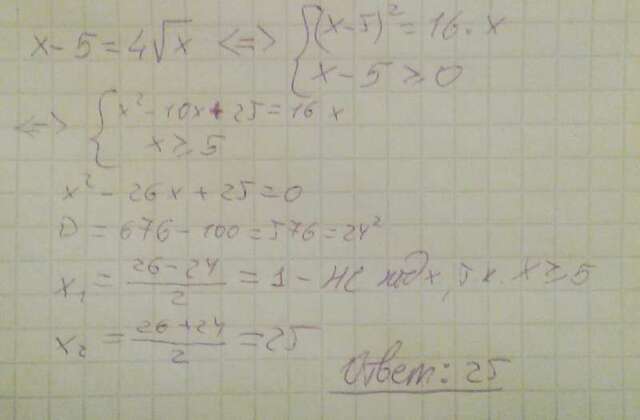 x-5=4√x <=> { (x-5)²=16·x
x-5≥0
<=> { x²-10x+25=16x
x≥5
x²-26x+25=0
D=676-100=576=24²
x₁=(26-24)/2=1 - не подх, т.к. x≥5
x₂=(26+24)/2=25
Ответ: 25